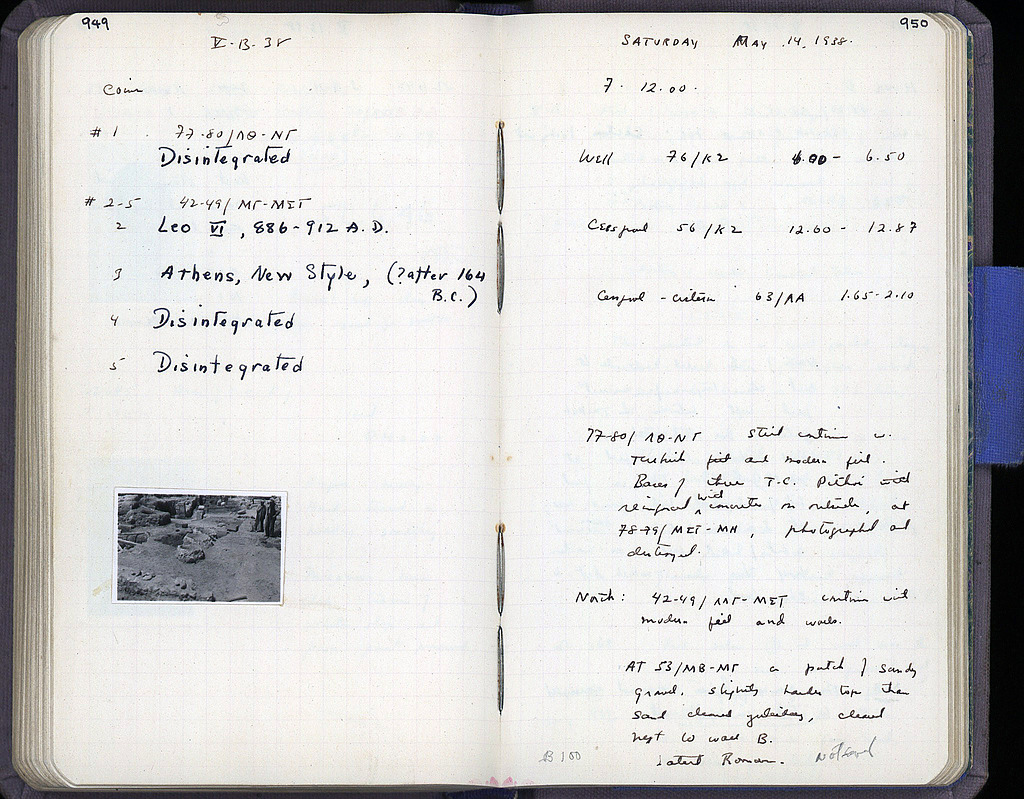 949
V·13·38
Coins
#1 . 77-80/ΛΘ-ΝΓ
Disintegrated
#2-5 42-49/ΜΓ-ΜΣΤ
2 Leo VI, 886-912 A.D.
3 Athens, New Style, (?after 164
B.C.)
4 Disintegrated
5 Disintegrated
950
SATURDAY MAY 14, 1938.
7 - 12.00.
Well 76/Κ2 6.00 - 6.50
Cesspool 56/Κ2 12.60 - 12.87
Cesspool - cistern 63/ΛΑ 1.65-2.10
77-80/ΛΘ-ΝΓ still continue w.
Turkish fill and modern fill.
Bases of three T.C. Pithoi
reinforced with concrete on outside, at
78-79/ΜΣΤ-ΜΗ, photographed and
destroyed.
North: 42-49/ΜΓ-ΜΣΤ continue with
modern fill and walls.
AT 53/ΜΒ-ΜΓ a patch of sandy
gravel, slightly harder top than
sand cleaned yesterday, cleaned
next to wall B.
Latest Roman.
Not saved
B 100